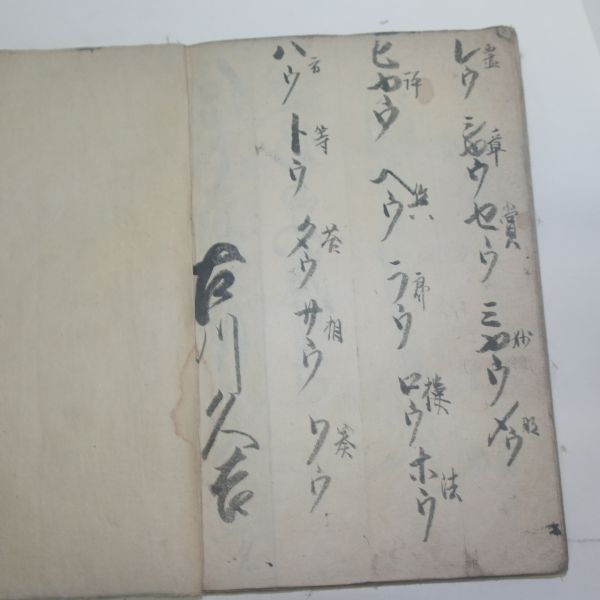 レウ シヤウ章 セウ賞 ミヤウ妙 メウ
ヒヤウ ヘウ ラウ郎 ロウ樓 ホウ法
ハウ方 トウ等 タウ サウ相 ワウ
古川久吉